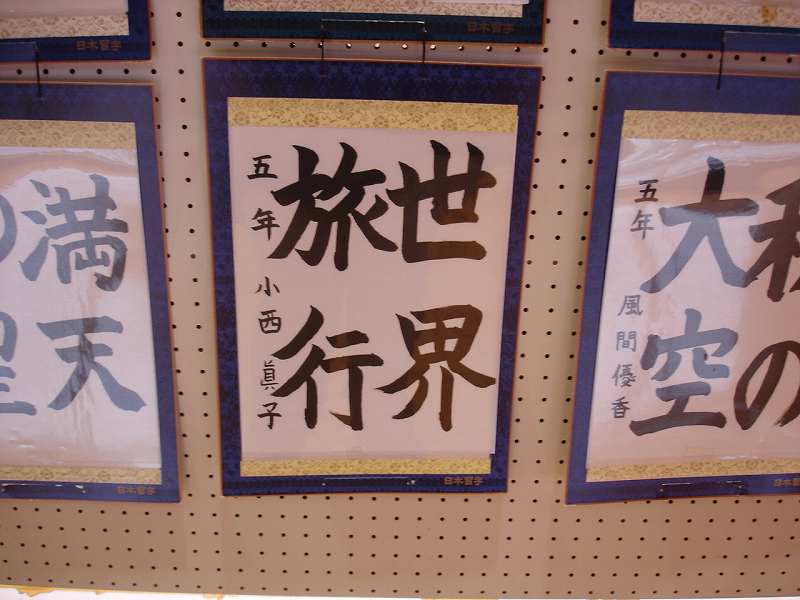 日本習字
日本習字
満天
の星
日本習字
世界
旅行
五年 小西眞子
日本習字
の
大空
五年 風間優香